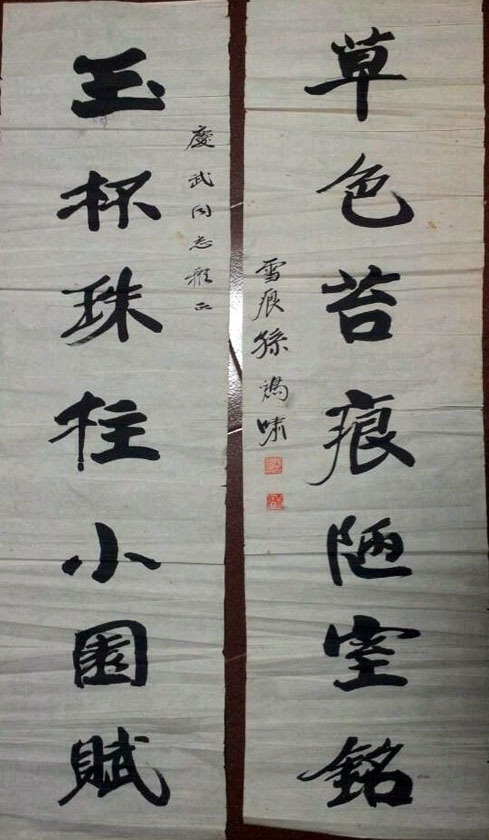 草色苔痕陋室銘
雪痕孫嘯
慶武同志雅正
玉杯珠柱小園賦